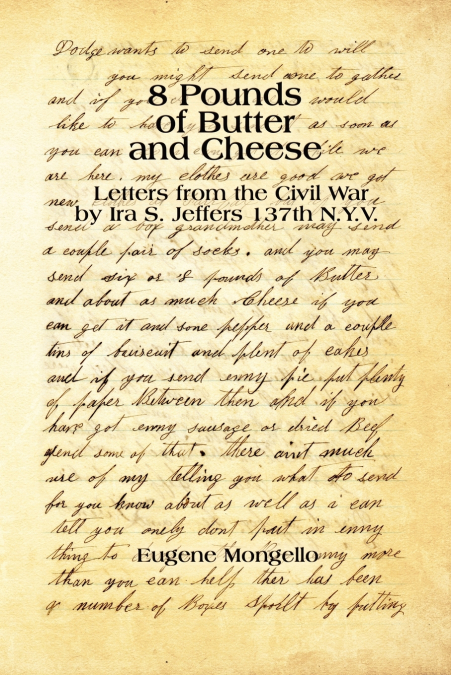 Dodge wants to send one to will
you might send one to gather
and if you would
8 Pounds
of Butter
and Cheese
like to as soon as
you can while we
are here. my clothes are good we got
new
Letters from the Civil War
by Ira S. Jeffers 137th N.Y.V.
send a box grandmother may send
a couple pair of socks. and you may
send six or 8 pounds of Butter
and about as much Cheese if you
can get it and some pepper and a couple
tins of bauscuit and plent of cakes
and if you send enny pie put plenty
of paper Between then and if you
have got enny sausage or dried Beef
send some of that. there aint much
use of my telling you what to send
for you know about as well as i can
tell you onely dont put in enny
thing to enny more
Eugene Mongello
than you can help ther has been
a number of Boxes spoilt by putting